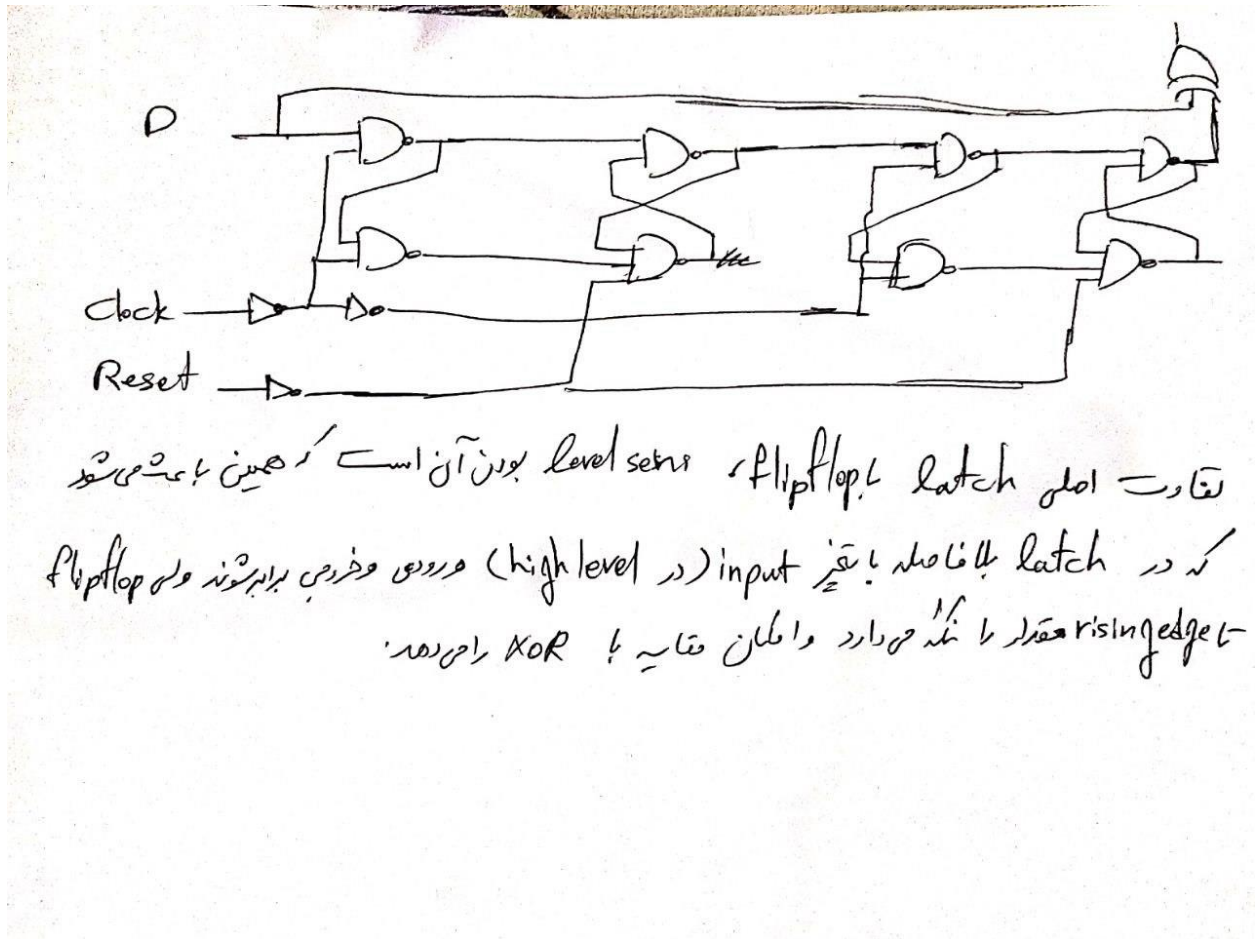 D
Clock
Reset
تفاوت اصلی latch با flipflop، level sensi بودن آن است که همین باعث می‌شود
که در latch بلافاصله با تغییر input (در high level) ورودی و خروجی برابر شوند ولی flipflop
تا rising edge مقدار را نگه می‌دارد و امکان مقایسه با XOR را می‌دهد.